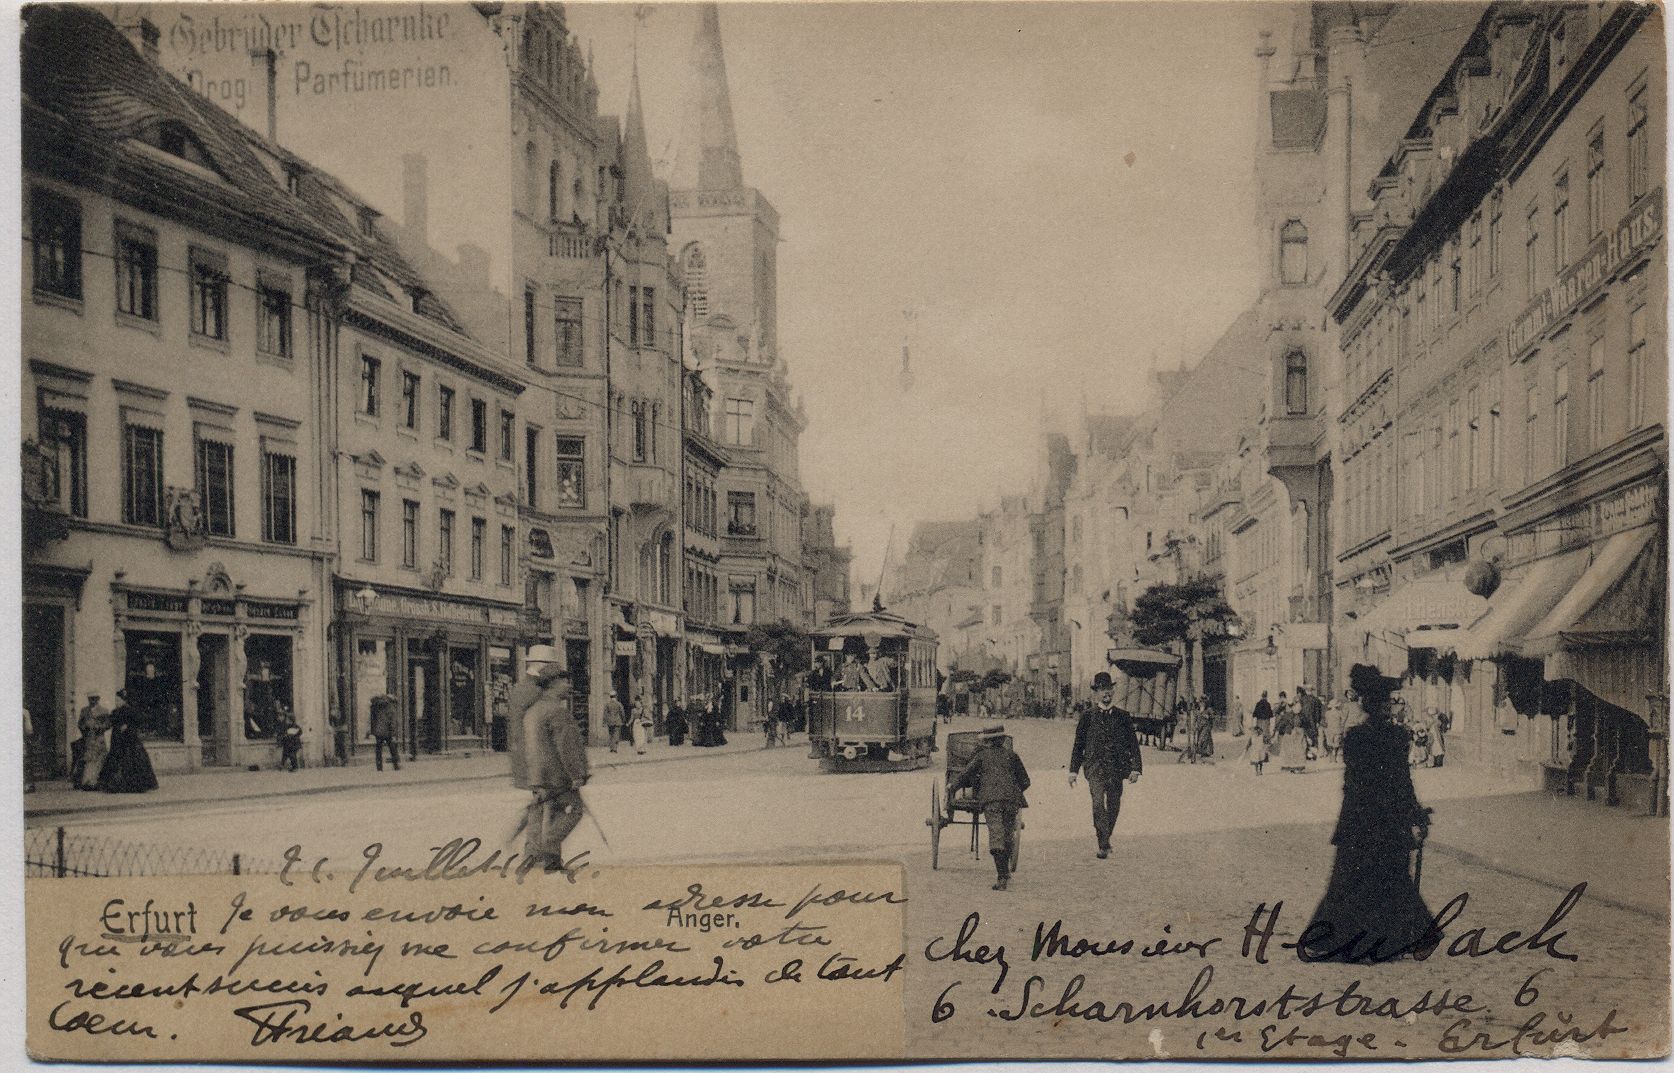 Gebrüder Tscharnke.
Drog Parfümerien.
Gummi-Waaren-Haus.
14
21 Juillet 1904.
Erfurt Anger.
Je vous envoie mon adresse pour
que vous puissiez me confirmer votre
récent succès auquel j'applaudis de tout
coeur.
chez Monsieur Heubach
6 Scharnhorststrasse 6
1er Etage - Erfürt